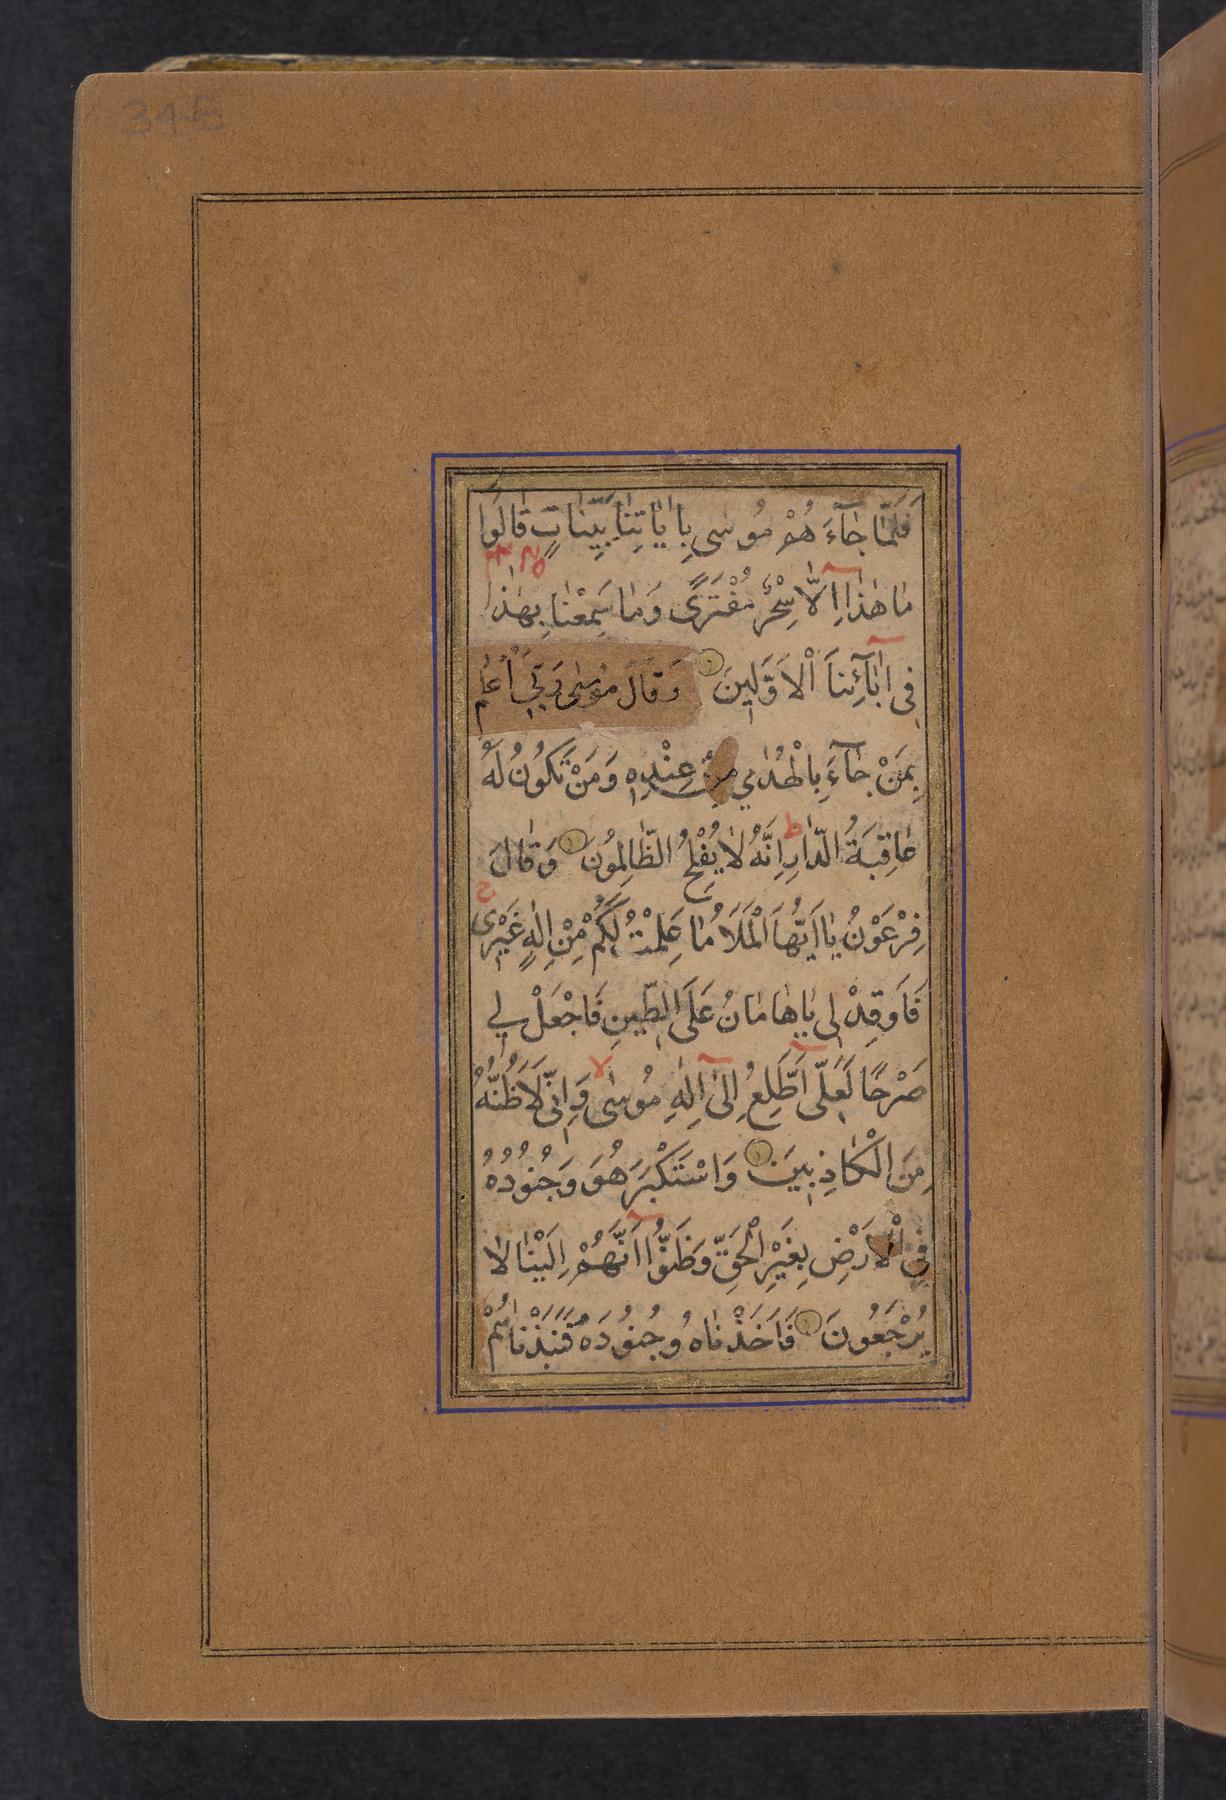 34B
فَلَمَّا جَآءَ هُمْ مُوسٰى بِاٰيَاتِنَا بَيِّنَاتٍ قَالُوا
مَا هٰذَا اِلَّا سِحْرٌ مُفْتَرًى وَمَا سَمِعْنَا بِهٰذَا
فِى اٰبَآئِنَا الْاَوَّلِينَ وَقَالَ مُوسٰى رَبِّى اَعْلَمُ
بِمَنْ جَآءَ بِالْهُدٰى مِنْ عِنْدِهِ وَمَنْ تَكُونُ لَهُ
عَاقِبَةُ الدَّارِ ط اِنَّهُ لَا يُفْلِحُ الظَّالِمُونَ وَقَالَ
فِرْعَوْنُ يَا اَيُّهَا الْمَلَاُ مَا عَلِمْتُ لَكُمْ مِنْ اِلٰهٍ غَيْرِى ج
فَاَوْقِدْ لِى يَا هَامَانُ عَلَى الطِّينِ فَاجْعَلْ لِي
صَرْحًا لَعَلِّى اَطَّلِعُ اِلٰٓى اِلٰهِ مُوسٰى لا وَاِنِّى لَاَظُنُّهُ
مِنَ الْكَاذِبِينَ وَاسْتَكْبَرَ هُوَ وَجُنُودُهُ
فِى الْاَرْضِ بِغَيْرِ الْحَقِّ وَظَنُّوا اَنَّهُمْ اِلَيْنَا لَا
يُرْجَعُونَ فَاَخَذْنَاهُ وَجُنُودَهُ فَنَبَذْنَاهُمْ